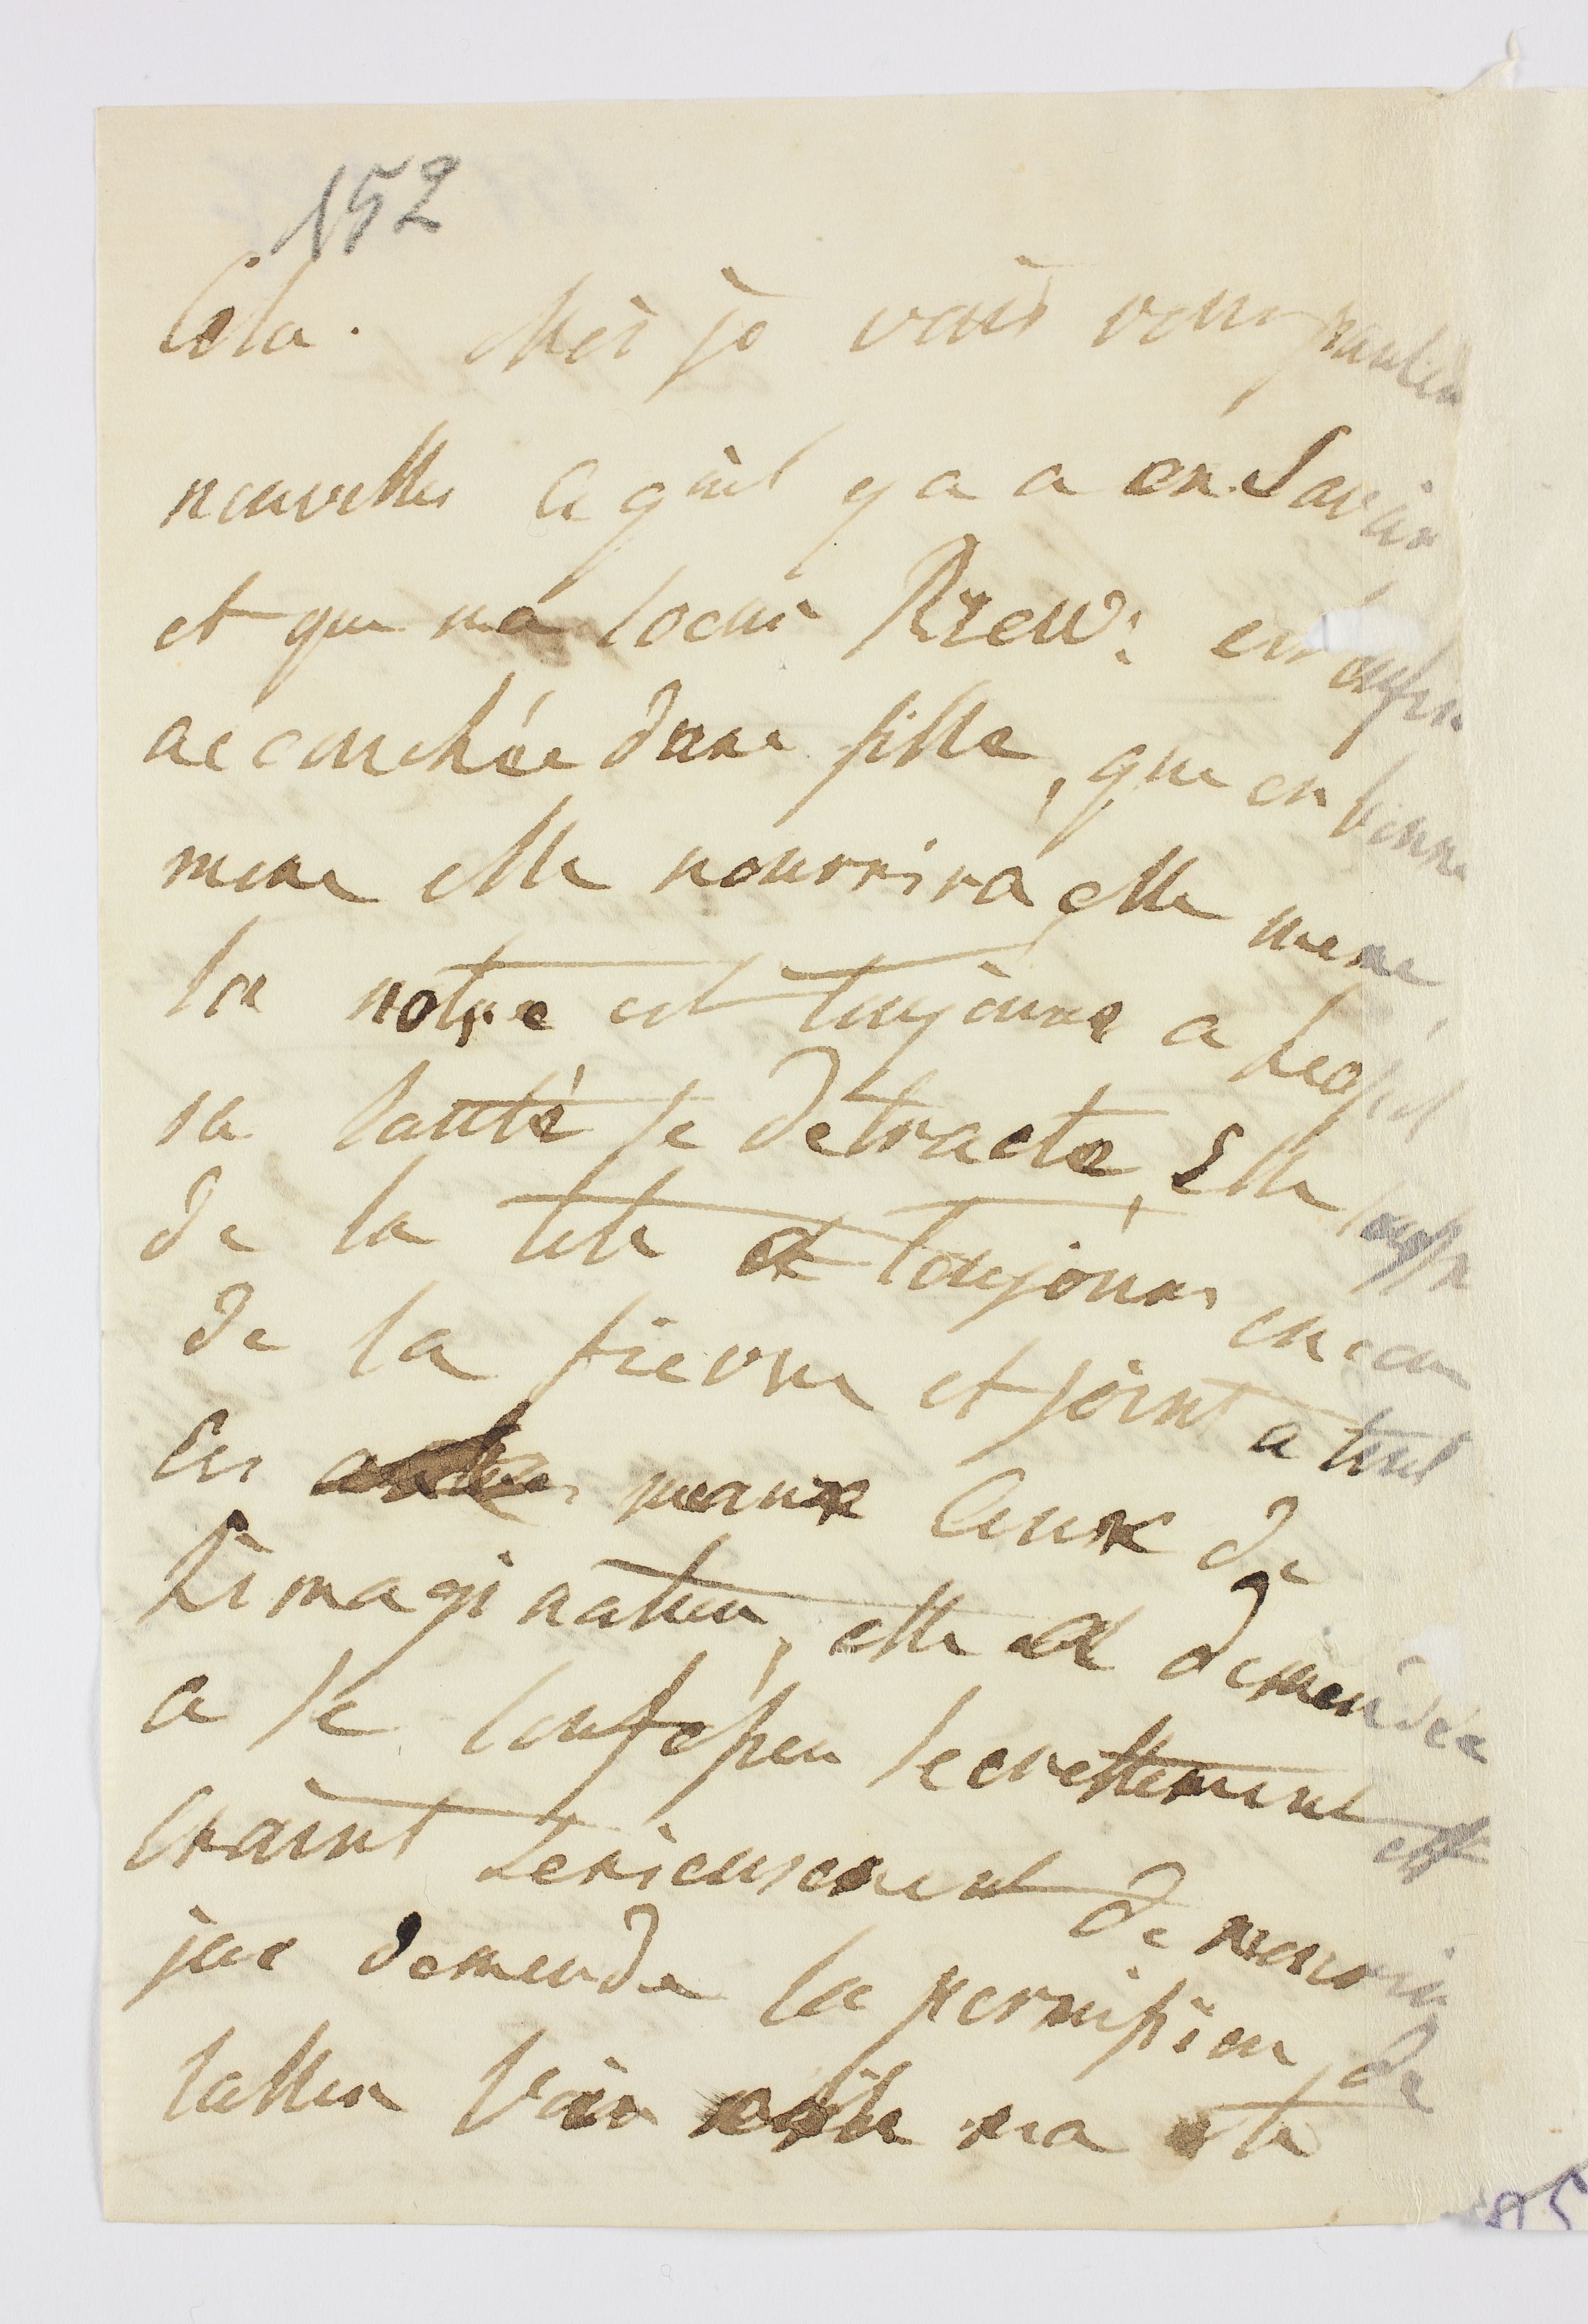 152
Cela. Mais je vais vous
nouvelles ce qu'il y a a en Savoir
et que ma Soeur Rzew: est enfin
accouchée d'une fille, que en bonne
mere elle nourrira elle meme,
la notre est toujours a Leop
sa santé se detracte, Elle souffre
de la tete et toujours encore
de la fievre et joint a tout
ces maux ceux de
l'imagination, elle a demendée
a se confesser secrettement et
craint serieusement de mourir
j'ai demendé la permission de
l'aller voir elle m'a